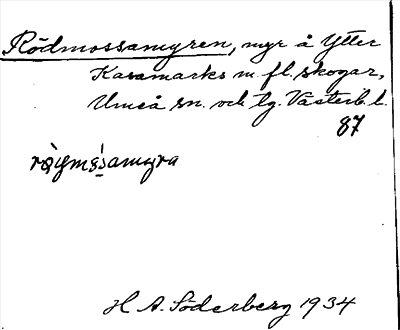 Rödmossamyren, myr å Ytter
Kasamarks m fl. skogar,
Umeå sn. och lg. Västerb. l.
87
H A. Söderberg 1934